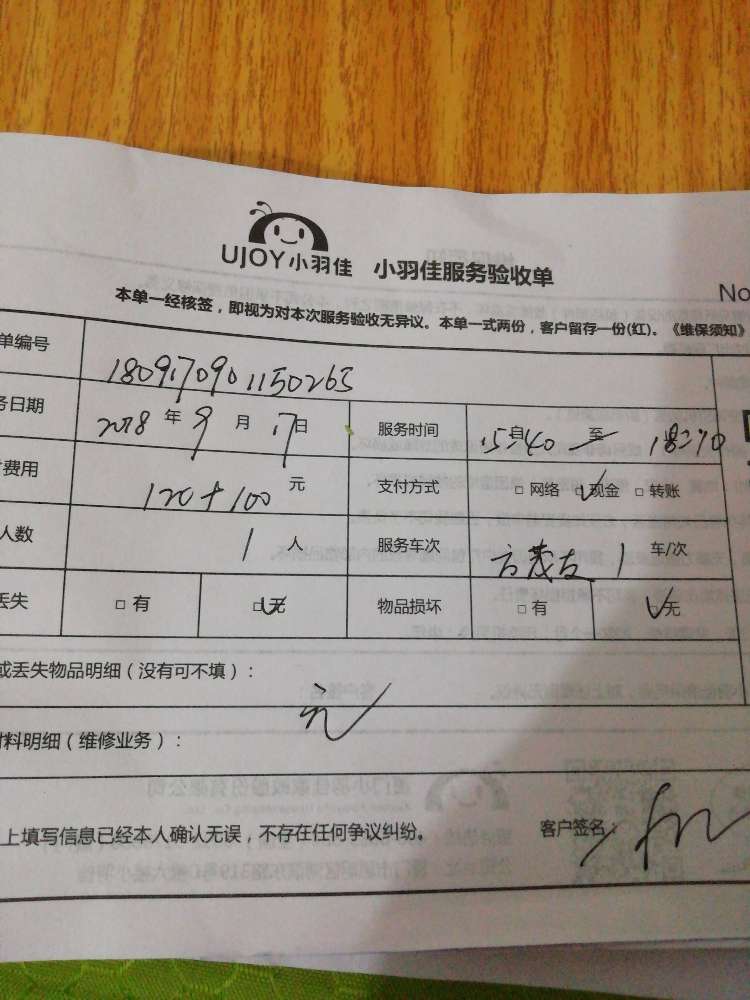 UJOY小羽佳 小羽佳服务验收单
No
本单一经核签，即视为对本次服务验收无异议。本单一式两份，客户留存一份(红)。《维保须知》
单编号 1809170901150263
务日期 2018 年 9 月 17 日 服务时间 15 自 40 至 18:20
费用 120+100 元 支付方式 □ 网络 □ 现金 □ 转账
人数 1 人 服务车次 方茂友 1 车/次
丢失 □ 有 □ 无 物品损坏 □ 有 □ 无
或丢失物品明细（没有可不填）：
料明细（维修业务）：
上填写信息已经本人确认无误，不存在任何争议纠纷。 客户签名：